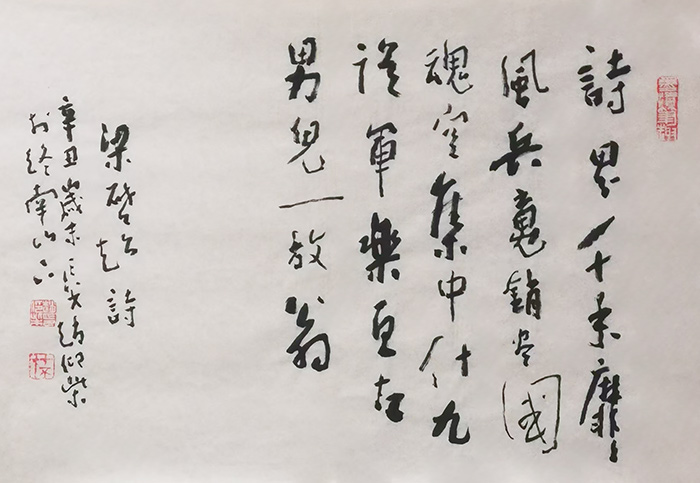 詩界千年靡〻
風兵魂銷尽國
魂空集中什九
從軍樂亘古
男兒一放翁
梁啓超詩
辛丑歲末趙仰柴
於終南山下